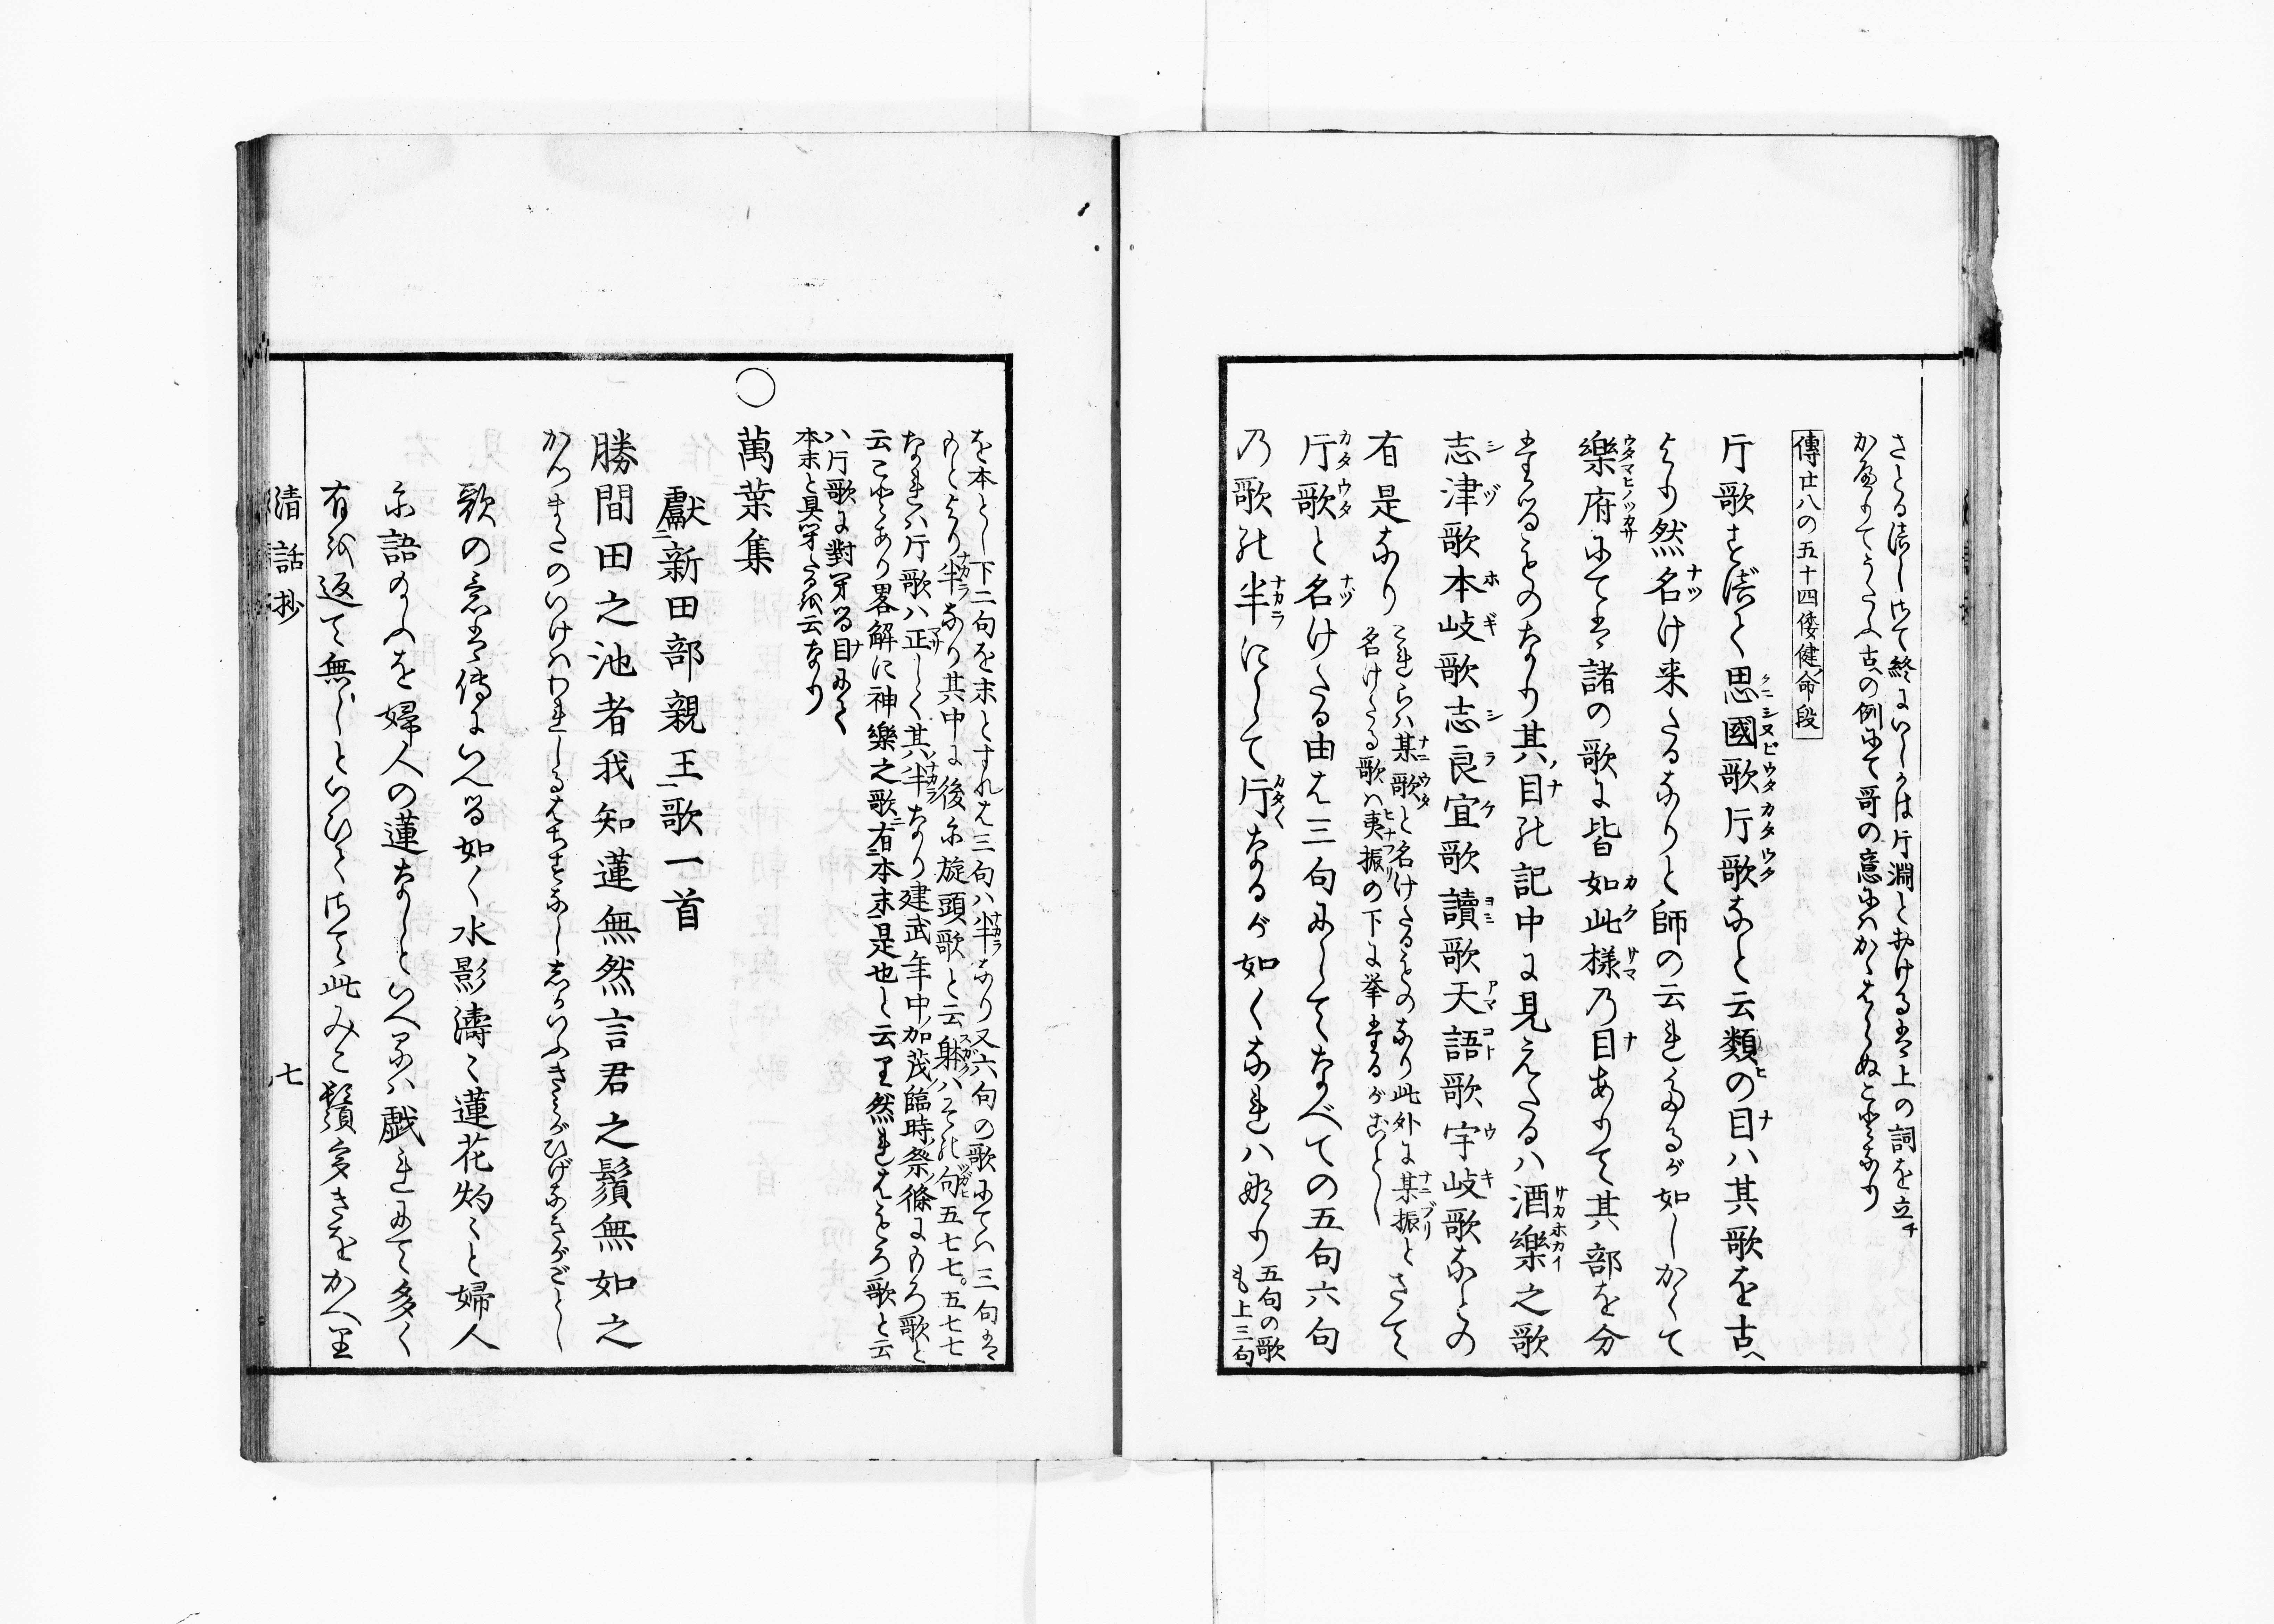 さとる清しさて終にいしうは片淵とおける者上の詞を立チ
かへりてうたふ古への例にて哥の意にハかゝはらぬことなり
傳廿八の五十四倭健命段
片歌は清く思國歌片歌なと云類の目ハ其歌を古へ
より然名け来たるなりと師の云れたるが如しかくて
樂府にては諸の歌に皆如此様乃目ありて其部を分
たるものなり其目の記中に見えたるハ酒樂之歌
志津歌本岐歌志良宜歌讀歌天語歌宇岐歌などの
有是なり
これらハ某歌と名けたるものなり此外に某振と
名けたる歌ハ夷振の下に挙たるがごとし
さて
片歌と名けたる由は三句にしてなべての五句六句
乃歌の半にして片なるが如くなれハなり
五句の歌
も上三句
を本とし下二句を末とすれは三句ハ半なり又六句の歌にてハ三句は
もとより半なり其中に後に旋頭歌と云躰ハその句五七七。五七七
なれハ片歌ハ正しく其半なり建武年中加茂臨時祭條にもろ歌と
云ことあり畧解に神樂之歌有本末是也と云り然れはもろ歌と云
ハ片歌に對へる目にて
本末と具へたるを云なり
〇萬葉集
獻新田部親王歌一首
勝間田之池者我知蓮無然言君之鬚無如之
かつまたのいけハわれしるはちすなししかいふきみがひげなきがごとし
歌の意は傳にいへる如く水影濤々蓮花灼々と婦人
に語りしを婦人の蓮なしといへるハ戯れにて多く
有を返て無しといひてさて此みこ鬚多きをかへり
清話抄
七